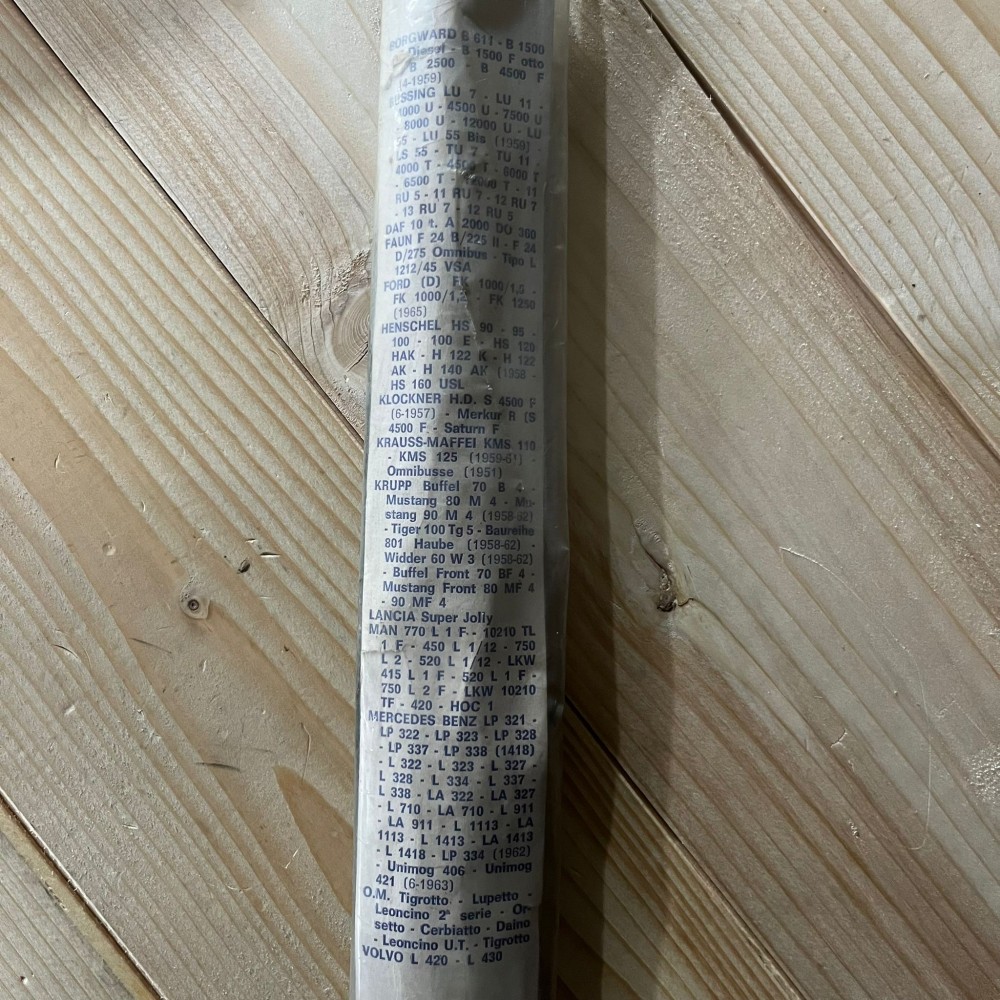 BORGWARD B 611 - B 1500
Diesel - B 1500 F otto
B 2500 - B 4500 F
(4-1959)
BÜSSING LU 7 - LU 11 -
4000 U - 4500 U - 7500 U
- 8000 U - 12000 U - LU
55 - LU 55 Bis (1959)
LS 55 - TU 7 - TU 11 -
4000 T - 4500 T - 6000 T
- 6500 T - 12000 T - 11
RU 5 - 11 RU 7 - 12 RU 7
- 13 RU 7 - 12 RU 5
DAF 10 t. A 2000 DO 300
FAUN F 24 B/225 II - F 24
D/275 Omnibus - Tipo L
1212/45 VSA
FORD (D) FK 1000/1,5 -
FK 1000/1, - FK 1250
(1965)
HENSCHEL HS 90 - 95 -
100 - 100 E - HS 120
HAK - H 122 K - H 122
AK - H 140 AK (1958 -
HS 160 USL
KLOCKNER H.D. S 4500 F
(6-1957) - Merkur R (S
4500 F - Saturn F
KRAUSS-MAFFEI KMS 110
- KMS 125 (1959-61) -
Omnibusse (1951)
KRUPP Buffel 70 B 4 -
Mustang 80 M 4 - Mu-
stang 90 M 4 (1958-62)
- Tiger 100 Tg 5 - Baureihe
801 Haube (1958-62) -
Widder 60 W 3 (1958-62)
- Buffel Front 70 BF 4 -
Mustang Front 80 MF 4
- 90 MF 4
LANCIA Super Jolly
MAN 770 L 1 F - 10210 TL
1 F - 450 L 1/12 - 750
L 2 - 520 L 1/12 - LKW
415 L 1 F - 520 L 1 F -
750 L 2 F - LKW 10210
TF - 420 - HOC 1
MERCEDES BENZ LP 321 -
LP 322 - LP 323 - LP 328
- LP 337 - LP 338 (1418)
- L 322 - L 323 - L 327 -
L 328 - L 334 - L 337 -
L 338 - LA 322 - LA 327
- L 710 - LA 710 - L 911
- LA 911 - L 1113 - LA
1113 - L 1413 - LA 1413
- L 1418 - LP 334 (1962)
- Unimog 406 - Unimog
421 (6-1963)
O.M. Tigrotto - Lupetto -
Leoncino 2ª serie - Or-
setto - Cerbiatto - Daino
- Leoncino U.T. - Tigrotto
VOLVO L 420 - L 430